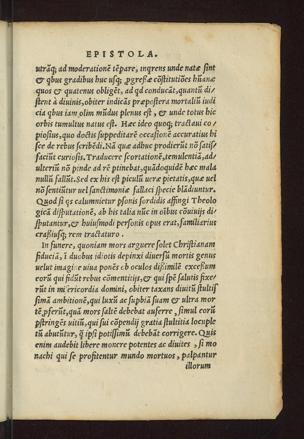 EPISTOLA.
utrãq; ad moderationẽ tẽpare, ingrens unde natæ sint
& qbus gradibus huc usq; ꝓgressæ cõstitutiões hũanæ
quos & quatenus obligẽt, ad qd conducãt, quantũ di-
stent à diuinis, obiter indicãs præpostera mortaliũ iudi
cia qbus iam olim mũdus plenus est, & unde totus hic
orbis tumultus natus est. Hæc ideo quoq; tractaui co
piosius, quo doctis suppeditarẽ occasionẽ accuratius bi
sce de rebus scribẽdi. Nã quæ adhuc prodierũt nõ satis-
faciũt curiosis. Traducere scortationẽ, temulentiã, ad-
ulteriũ nõ ꝑinde ad rẽ ꝑtinebat, quãdoquidẽ hæc mala
nullũ fallũt. Sed ex his est piculũ ueræ pietatis, quæ uel
nõ sentiũtur uel sanctimoniæ fallaci specie blãdiuntur.
Quod si qs calumnietur ꝑsonis sordidis affingi Theolo
gicã disputationẽ, ab his talia nũc in oĩbus cõuiuijs di-
sputantur, & huiusmodi personis opus erat, familiarius
crassiusq; rem tractaturo.
In funere, quoniam mors arguere solet Christianam
fiduciã, ĩ duobus idiotis depinxi diuersũ mortis genus
uelut imagine uiua ponẽs ob oculos dissimilẽ excessum
eorũ qui fidũt rebus cõmentitijs, & qui spẽ salutis fixe-
rũt in misericordia domini, obiter taxans diuitũ stultis
simã ambitionẽ, qui luxũ ac supbiã suam & ultra mor
tẽ ꝓferũt, quã mors saltẽ debebat auferre, simul eorũ
pstringẽs uitiũ, qui sui cõpendij gratia stultitia locuple
tũ abutũtur, q̃ ipsi potissimũ debebãt corrigere. Quis
enim audebit libere monere potentes ac diuites, si mo
nachi qui se profitentur mundo mortuos, palpantur
illorum